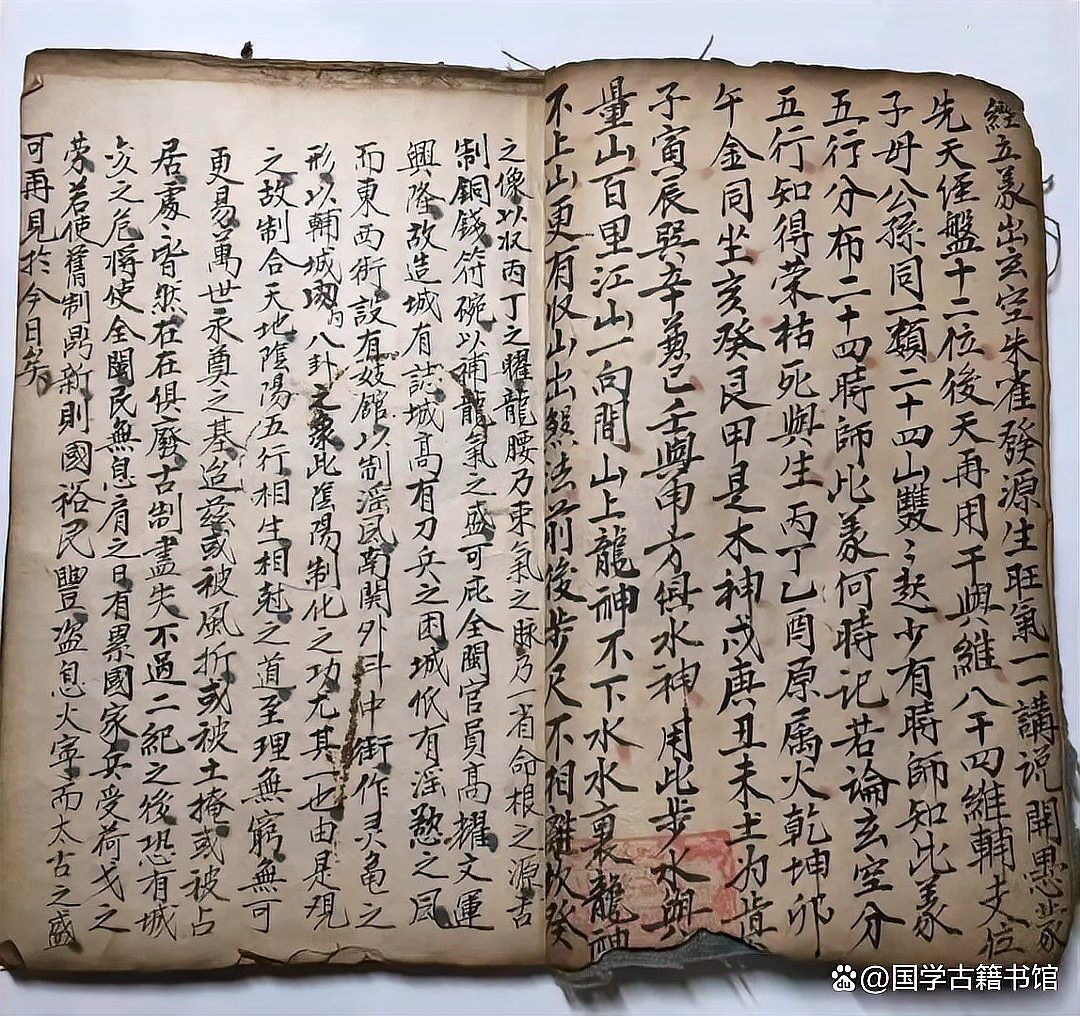 經立義出玄空朱雀發源生旺氣一一講說開愚蒙
先天經盤十二位後天再用干與維八干四維輔支位
子母公孫同一類二十四山雙々起少有時師知此義
五行分布二十四時師此義何時記若論玄空分
五行知得荣枯死與生丙丁乙酉原属火乾坤卯
午金同坐亥癸艮甲是木神戌庚丑未土为
子寅辰巽辛兼已壬與申方俱水神用此步水與
量山百里江山一向間山上龍神不下水水裏龍神
不上山更有收山出煞法前後步尺不相離
之像以收丙丁之曜龍腰乃東氣之脉乃一省命根之源古
制銅錢符碗以補龍氣之盛可庇全閩官員高耀文運
興隆故造城有誌城高有刀兵之困城低有淫慾之風
而東西街設有妓館以制淫風南関外斗中街作灵龜之
形以輔城内八卦之象此陰陽制化之功尤其一也由是观
之故制合天地陰陽五行相生相尅之道至理無窮無可
更易萬世永奠之基迨兹或被風折或被土掩或被占
居處々皆然在在俱廢古制盡失不過二紀之後恐有城
亥之危將使全閩民無息肩之日有累國家兵受荷戈之
荣若使舊制鼎新則國裕民豐盗息火寧而太古之盛
可再見於今日矣
@国学古籍书馆